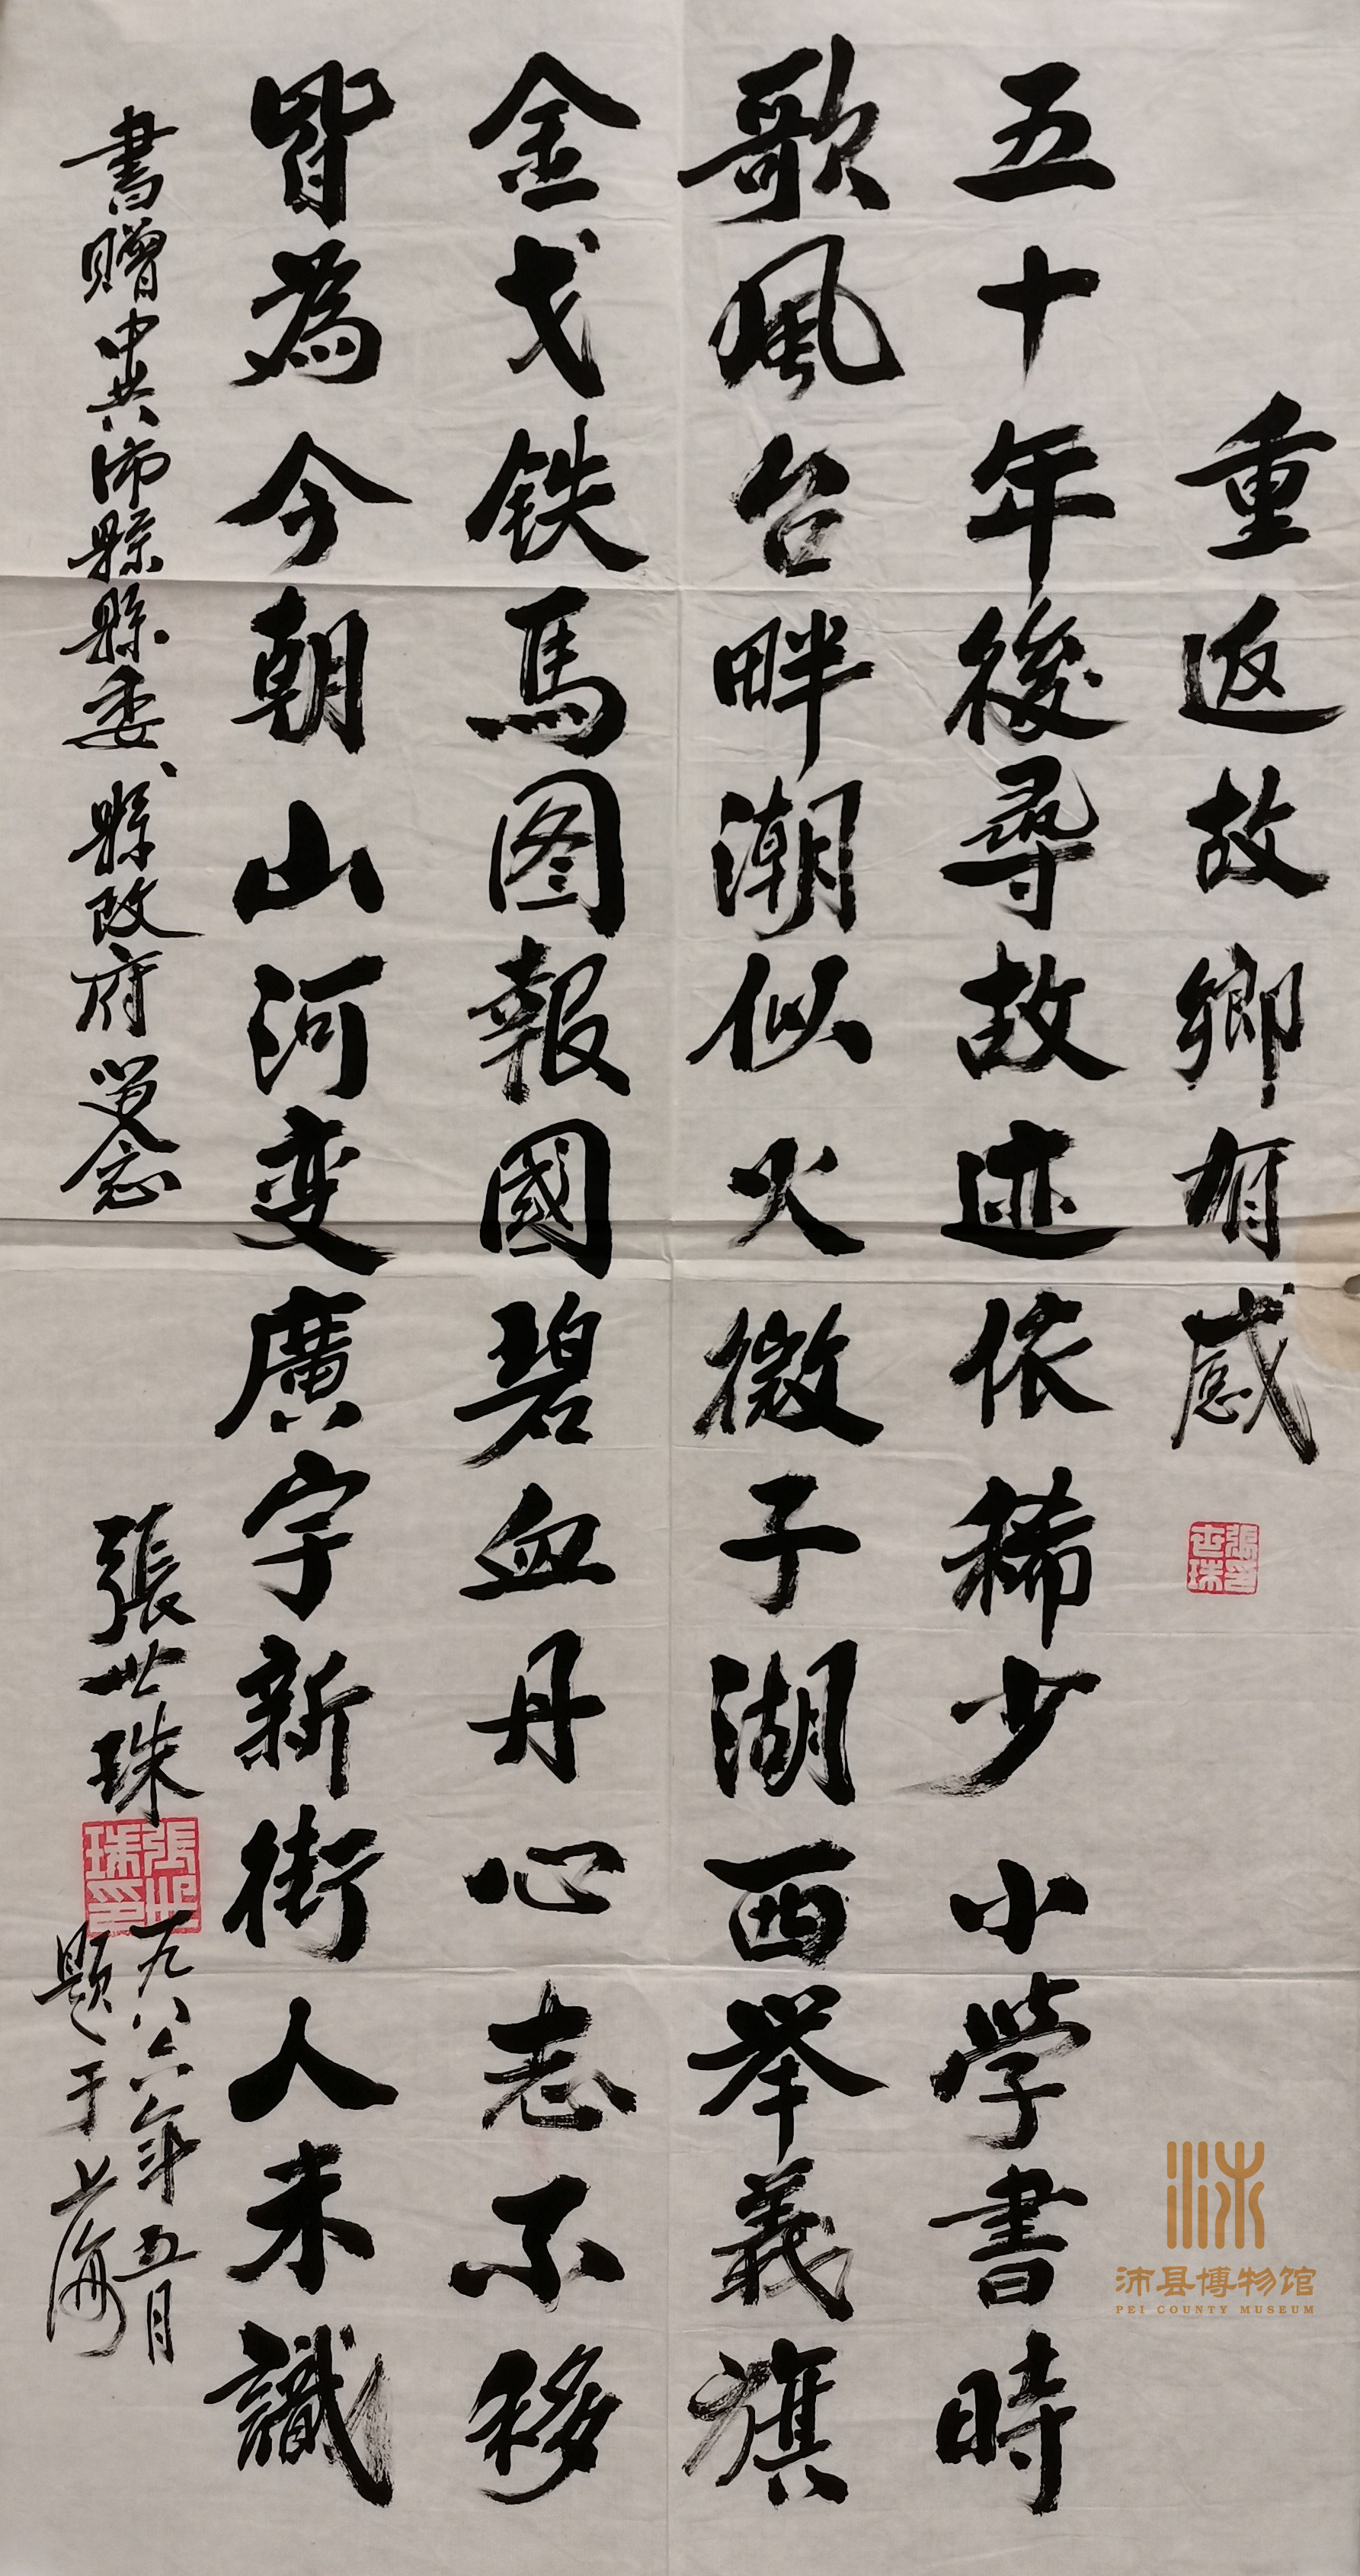 重返故鄉有感
張印世珠
五十年後尋故迹依稀少小学書時
歌風台畔潮似火微子湖西举義旗
金戈铁馬图報國碧血丹心志不移
皆為今朝山河变廣宇新街人未識
書贈中共沛縣縣委、縣政府留念
張世珠
張世珠印
一九八六年五月
题于上海
沛县博物馆
PEI COUNTY MUSEUM